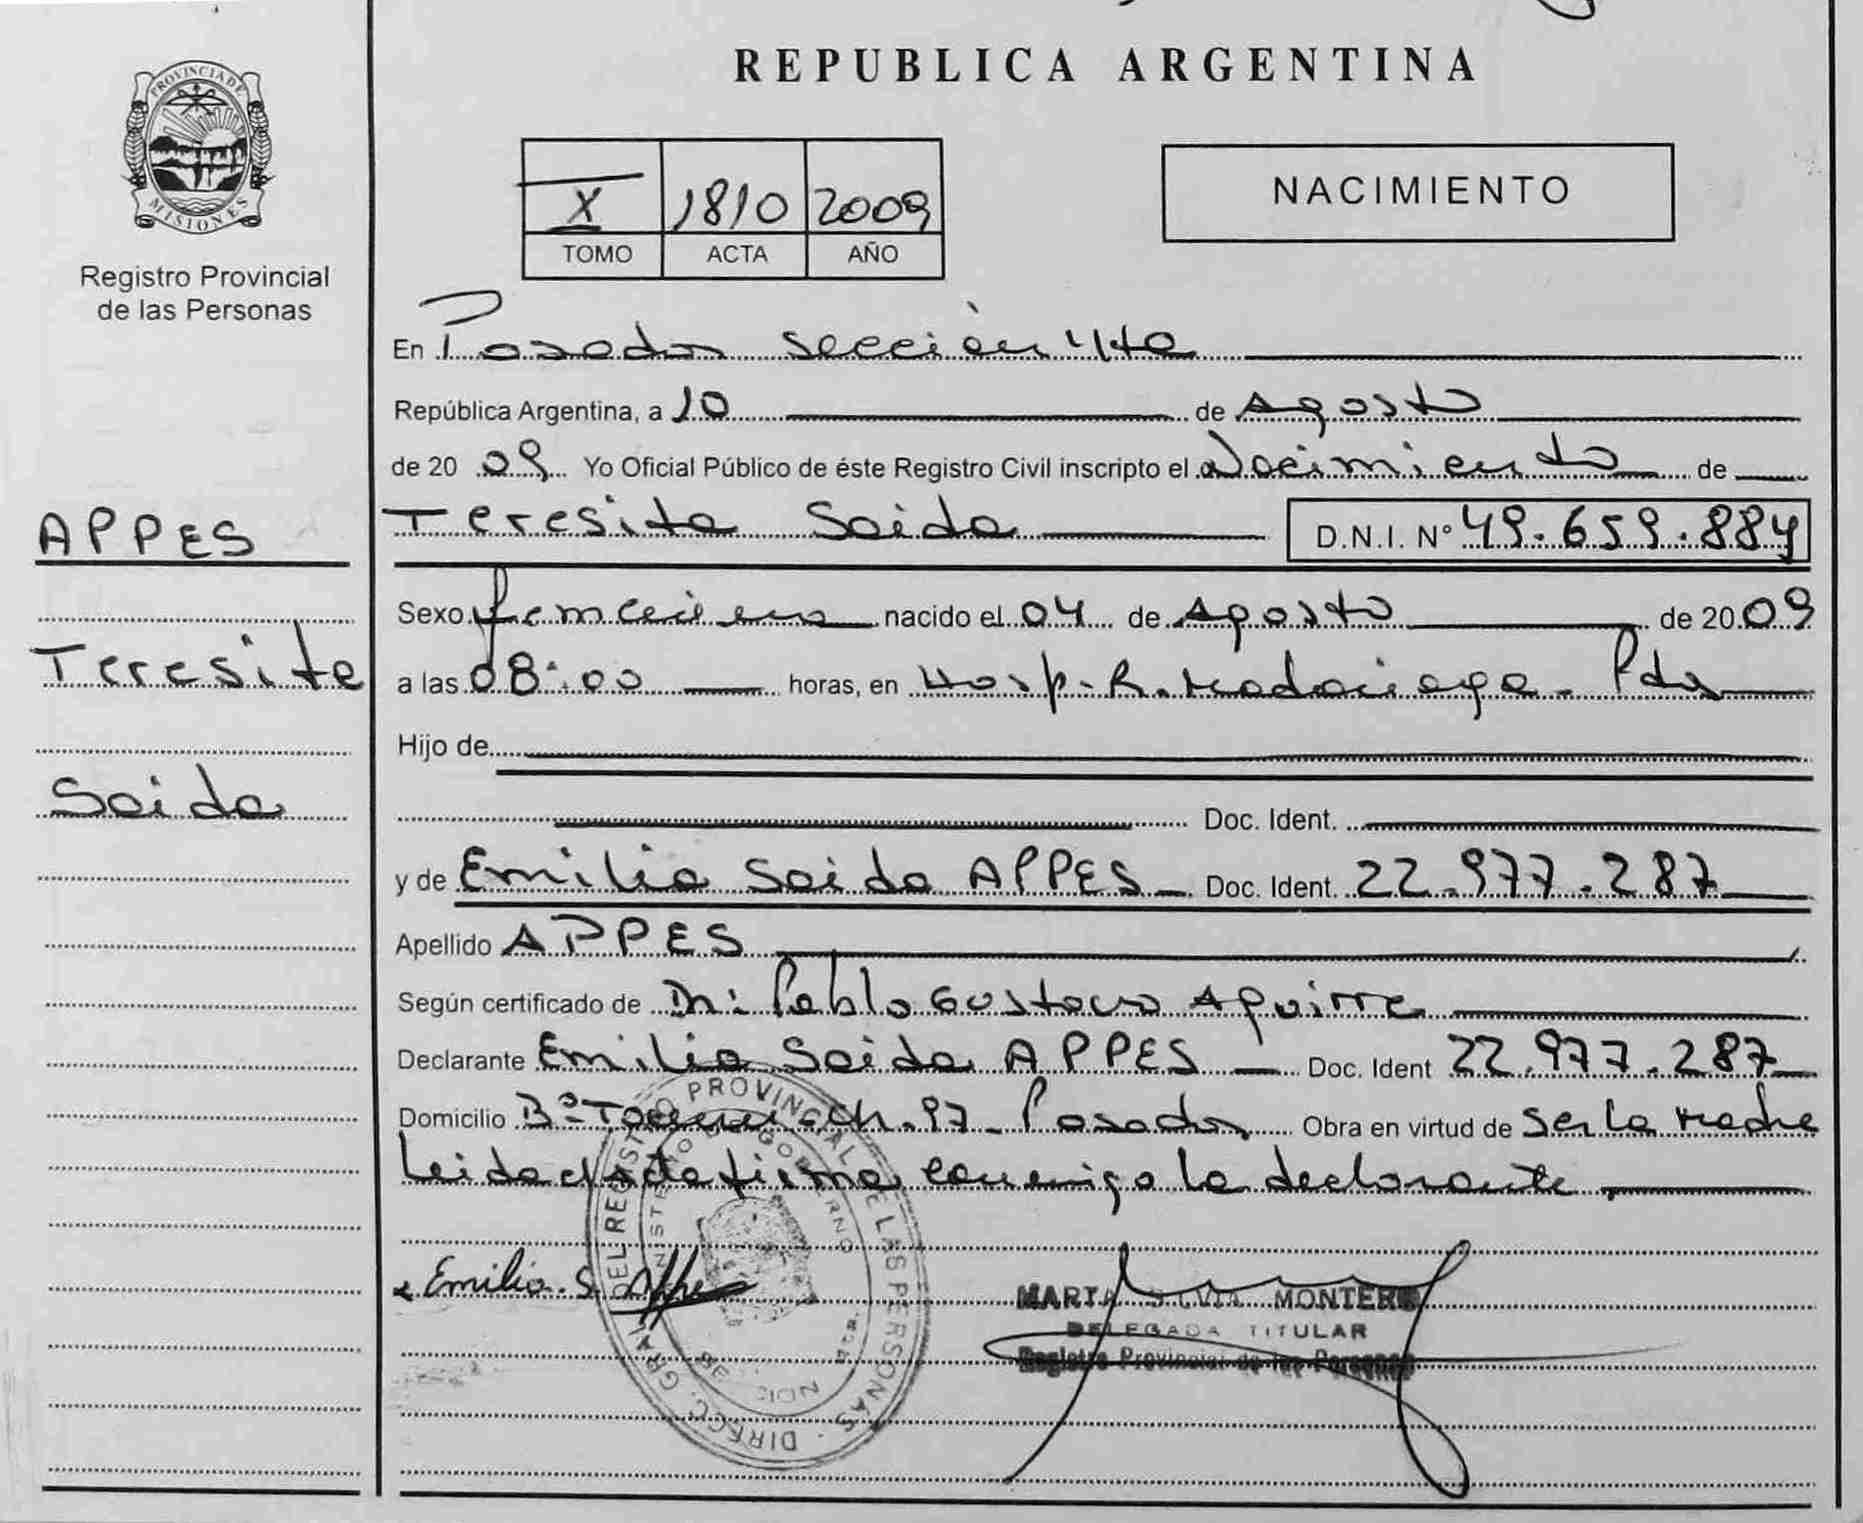 REPUBLICA ARGENTINA
PROVINCIA DE MISIONES
Registro Provincial
de las Personas
X 1810 2009
TOMO ACTA AÑO
NACIMIENTO
En Posadas Sección 4ta
República Argentina, a 10 de Agosto
de 20 09 Yo Oficial Público de éste Registro Civil inscripto el Nacimiento de
Teresita Saida D.N.I. Nº 49.659.884
APPES
Teresita
Saida
Sexo femenino nacido el 04 de Agosto de 20 09
a las 08:00 horas, en Hosp. R. Madariaga - Pdas
Hijo de
Doc. Ident.
y de Emilia Saida APPES Doc. Ident. 22.977.287
Apellido APPES
Según certificado de Dr: Pablo Gustavo Aguirre
Declarante Emilia Saida APPES Doc. Ident 22.977.287
Domicilio Bº Ch. 97 - Posadas Obra en virtud de ser la Madre
Leida el acta firma conmigo la declarante
Emilia S. Appes
MARTA SILVIA MONTERO
DELEGADA TITULAR
Registro Provincial de las Personas
DIRECC. GRAL. DEL REGISTRO PROVINCIAL DE LAS PERSONAS
MINISTERIO DE GOBIERNO